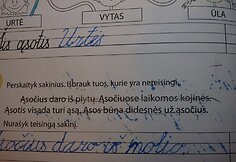 URTĖ VYTAS ŪLA
tis ąsotis Urtės
Perskaityk sakinius. Išbrauk tuos, kurie yra neteisingi.
Ąsočius daro iš plytų. Ąsočiuose laikomos kojinės.
Ąsotis visada turi ąsą. Ąsos būna didesnės už ąsočius.
Nurašyk teisingą sakinį.
sočius daro iš molio.